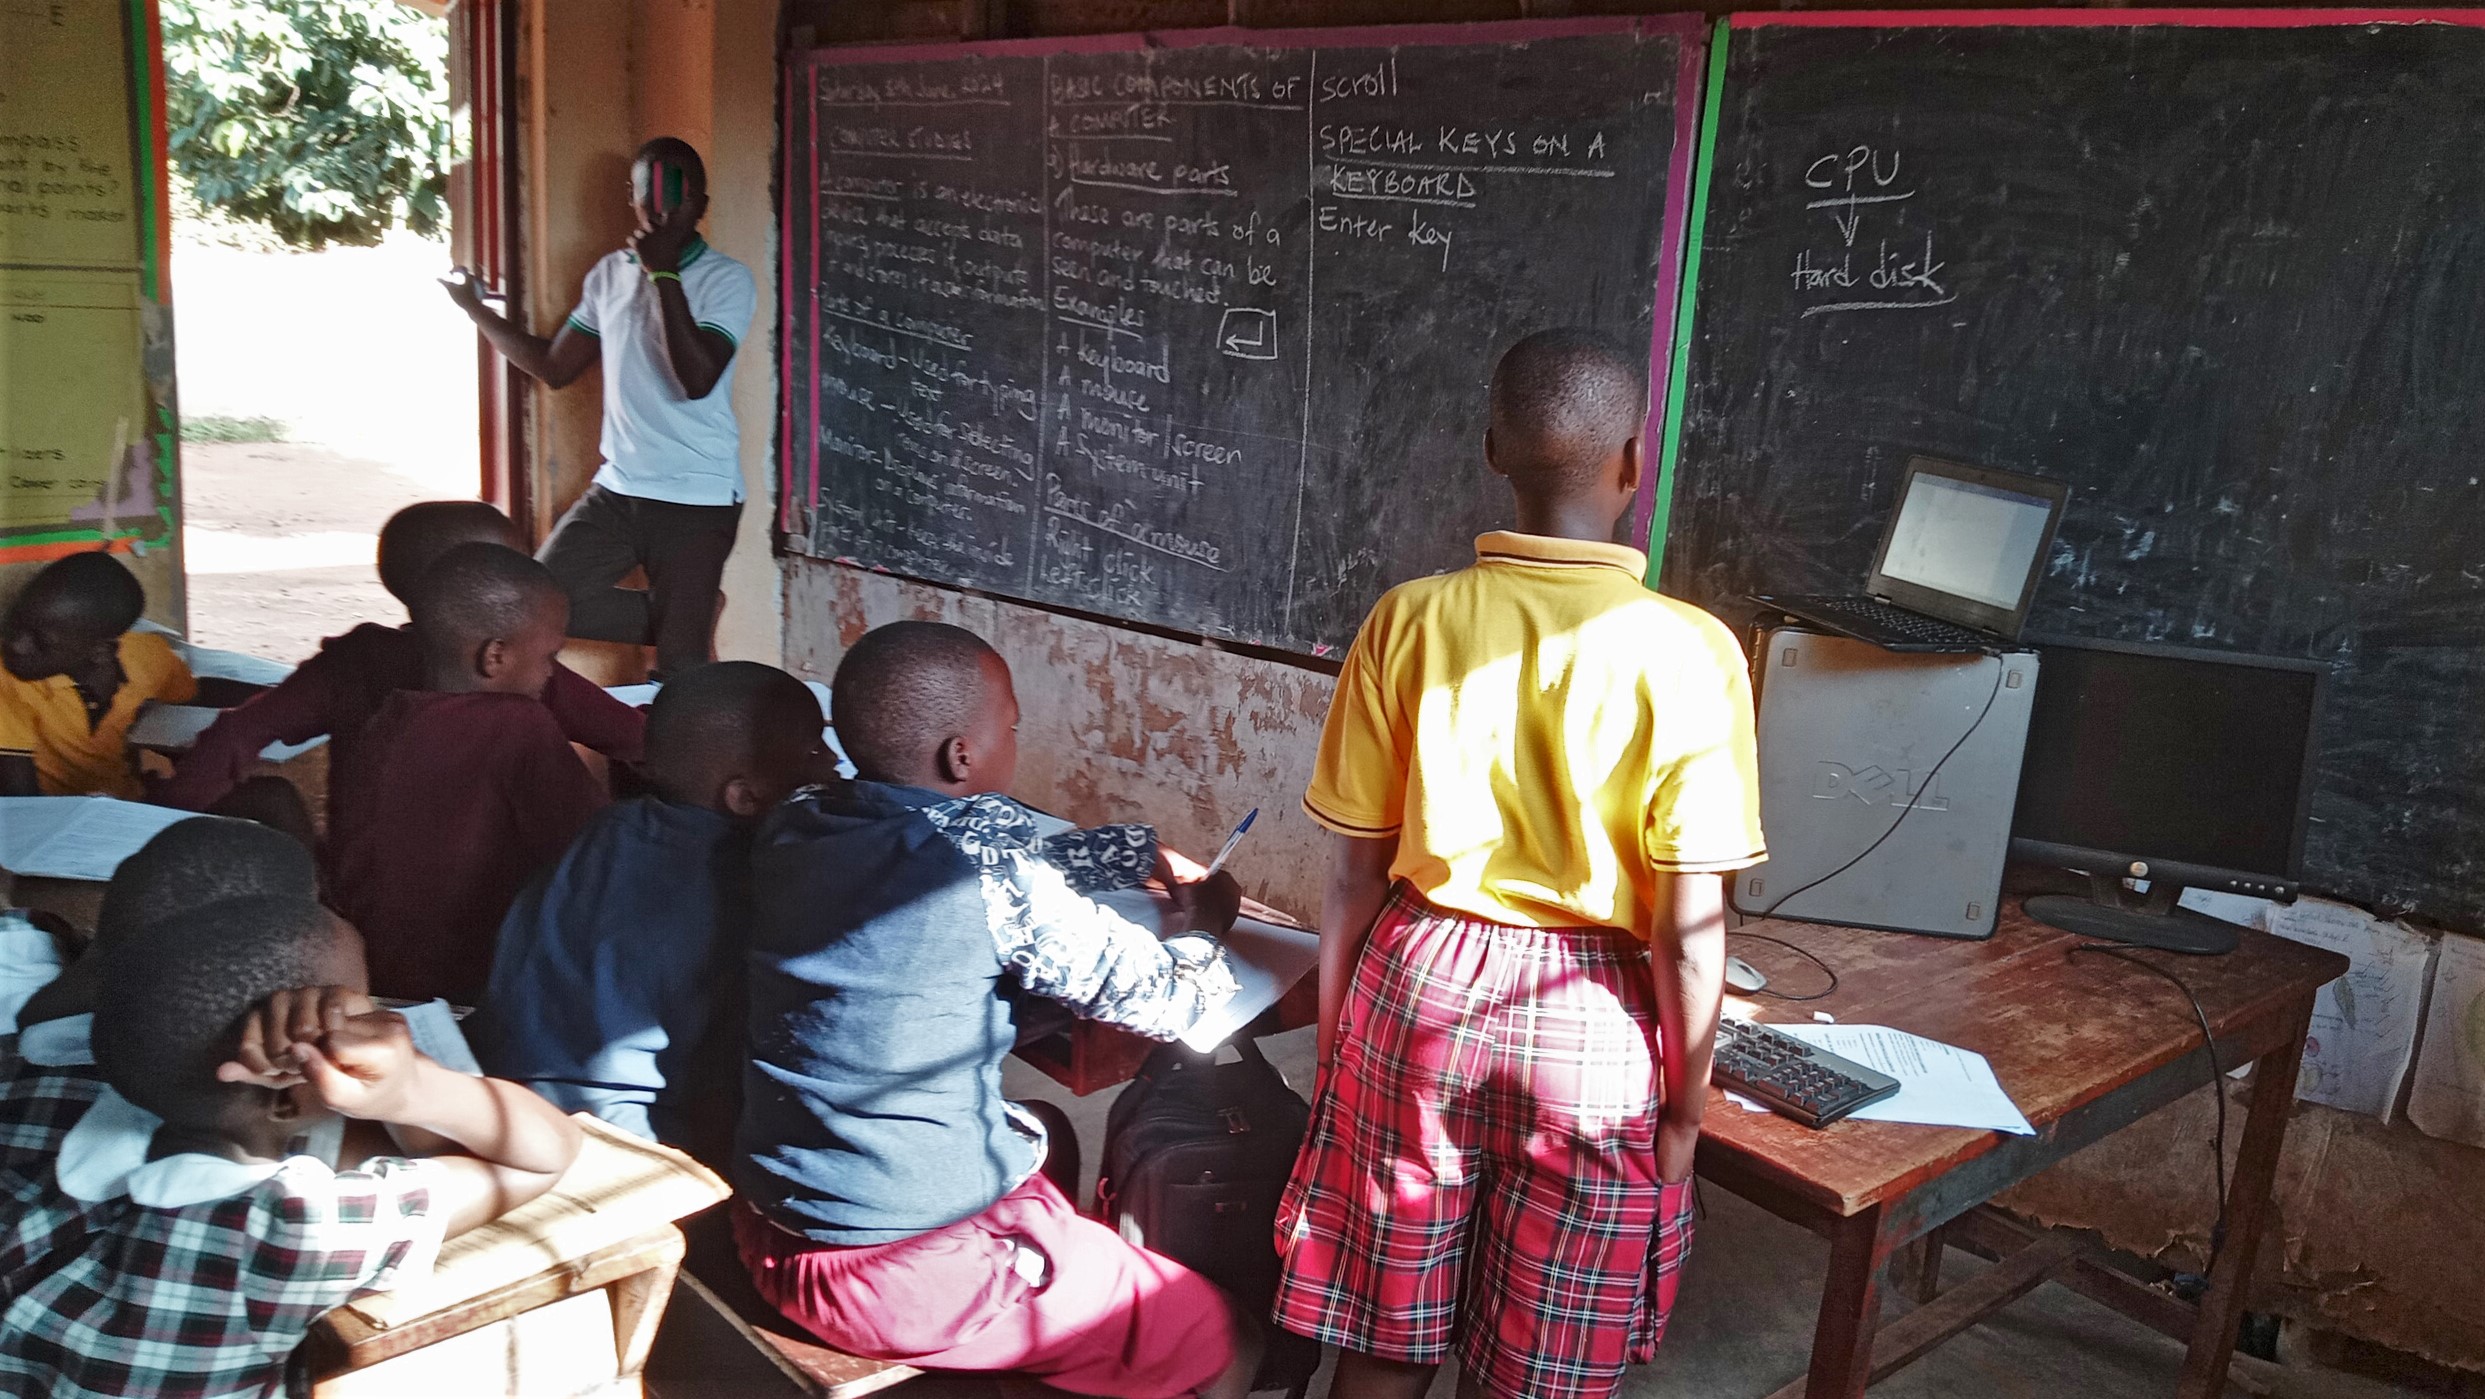 E
mpass
t by the
nal points?
arts makes
Cover
Saturday 8th June, 2024
COMPUTER STUDIES
A computer is an electronic
device that accepts data
inputs, processes it, outputs
it and stores it as information
Parts of a computer
Keyboard - Used for typing
text
mouse - Used for selecting
items on a screen.
Monitor - Displays information
on a computer.
System unit - keeps the inside
parts of a computer
BASIC COMPONENTS OF
A COMPUTER
Hardware parts
These are parts of a
computer that can be
seen and touched.
Examples
A keyboard
A mouse
A monitor / screen
A System unit
Parts of a mouse
Right click
Left click
scroll
SPECIAL KEYS ON A
KEYBOARD
Enter key
CPU
Hard disk
DELL